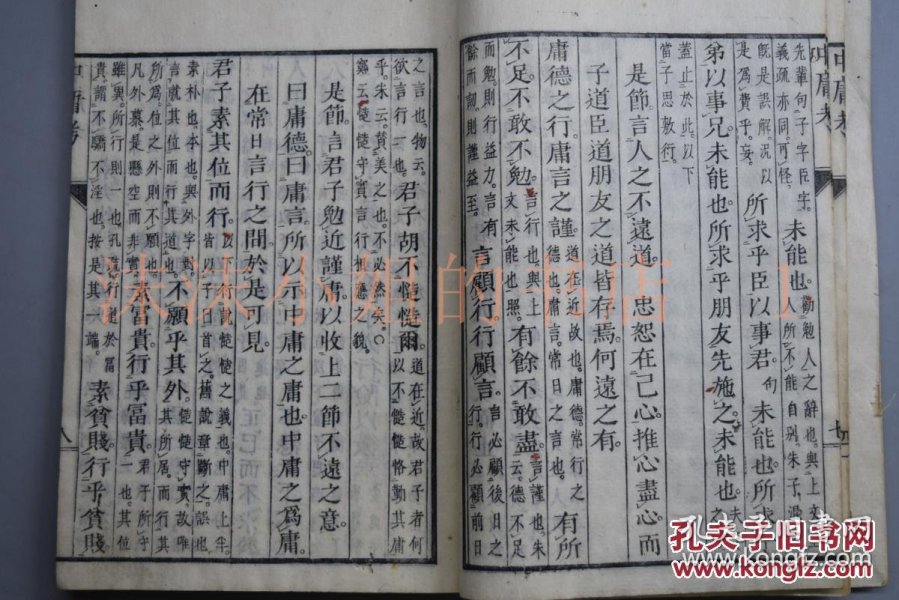 中庸考
先輩句子字臣字
義疏亦同可怪
既是誤解況以
是爲貴乎妄
未能也
勸勉人之辭也與上文
人所不能自別朱子過
所求乎臣以事君
句
未能也所求
弟以事兄未能也所求乎朋友先施之未能也
蓋止於此以下
當子思敷行
是節言人之不遠道忠恕在己心推心盡心而
子道臣道朋友之道皆存焉何遠之有
庸德之行庸言之謹
道在近故也庸德常行之
德也庸言常日之言也
有所
不足不敢不勉
言行也與上
文未能也照
有餘不敢盡
言謹也朱
云德不足
而勉則行益力言有
餘而訒則謹益至
言顧行行顧言
言必顧後日之
行行必顧前日
之言也物云
欲言行一也
君子胡不慥慥爾
道在近故君子者何
以不慥慥恪勤其庸
乎朱云贊美之也不必然矣
鄭云慥慥守實言行相應之貌
是節言君子勉近謹庸以收上二節不遠之意
曰庸德曰庸言所以示中庸之庸也中庸之爲庸
在常日言行之間於是可見
君子素其位而行
以下行說慥慥之義也中庸上半
皆以子曰首之舊說章斷之誤也
素朴也本也與外字對
言就其位而行其道也
不願乎其外
慥慥守實故唯
其所居而行其
所爲位之外則不願也
凡外慕是懸空而非實
素富貴行乎富貴
君子所守
一也其位
雖異所行則一也孔疏行道於富
貴謂不驕不淫也按是其一端
素貧賤行乎貧賤
中庸考
八
沫沫小姐的书店
孔夫子旧书网
www.kongfz.com